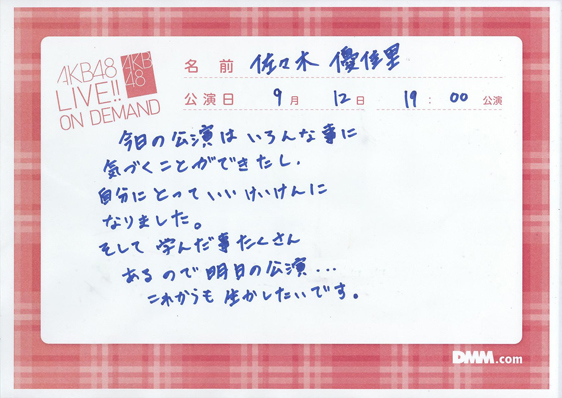 AKB48
LIVE!!
ON DEMAND
AKB
48
名前 佐々木 優佳里
公演日 9月 12日 19:00 公演
今日の公演は いろんな事に
気づくことができたし、
自分にとって いい けいけんに
なりました。
そして 学んだ事たくさん
あるので 明日の公演...
これからも 生かしたいです。
DMM.com